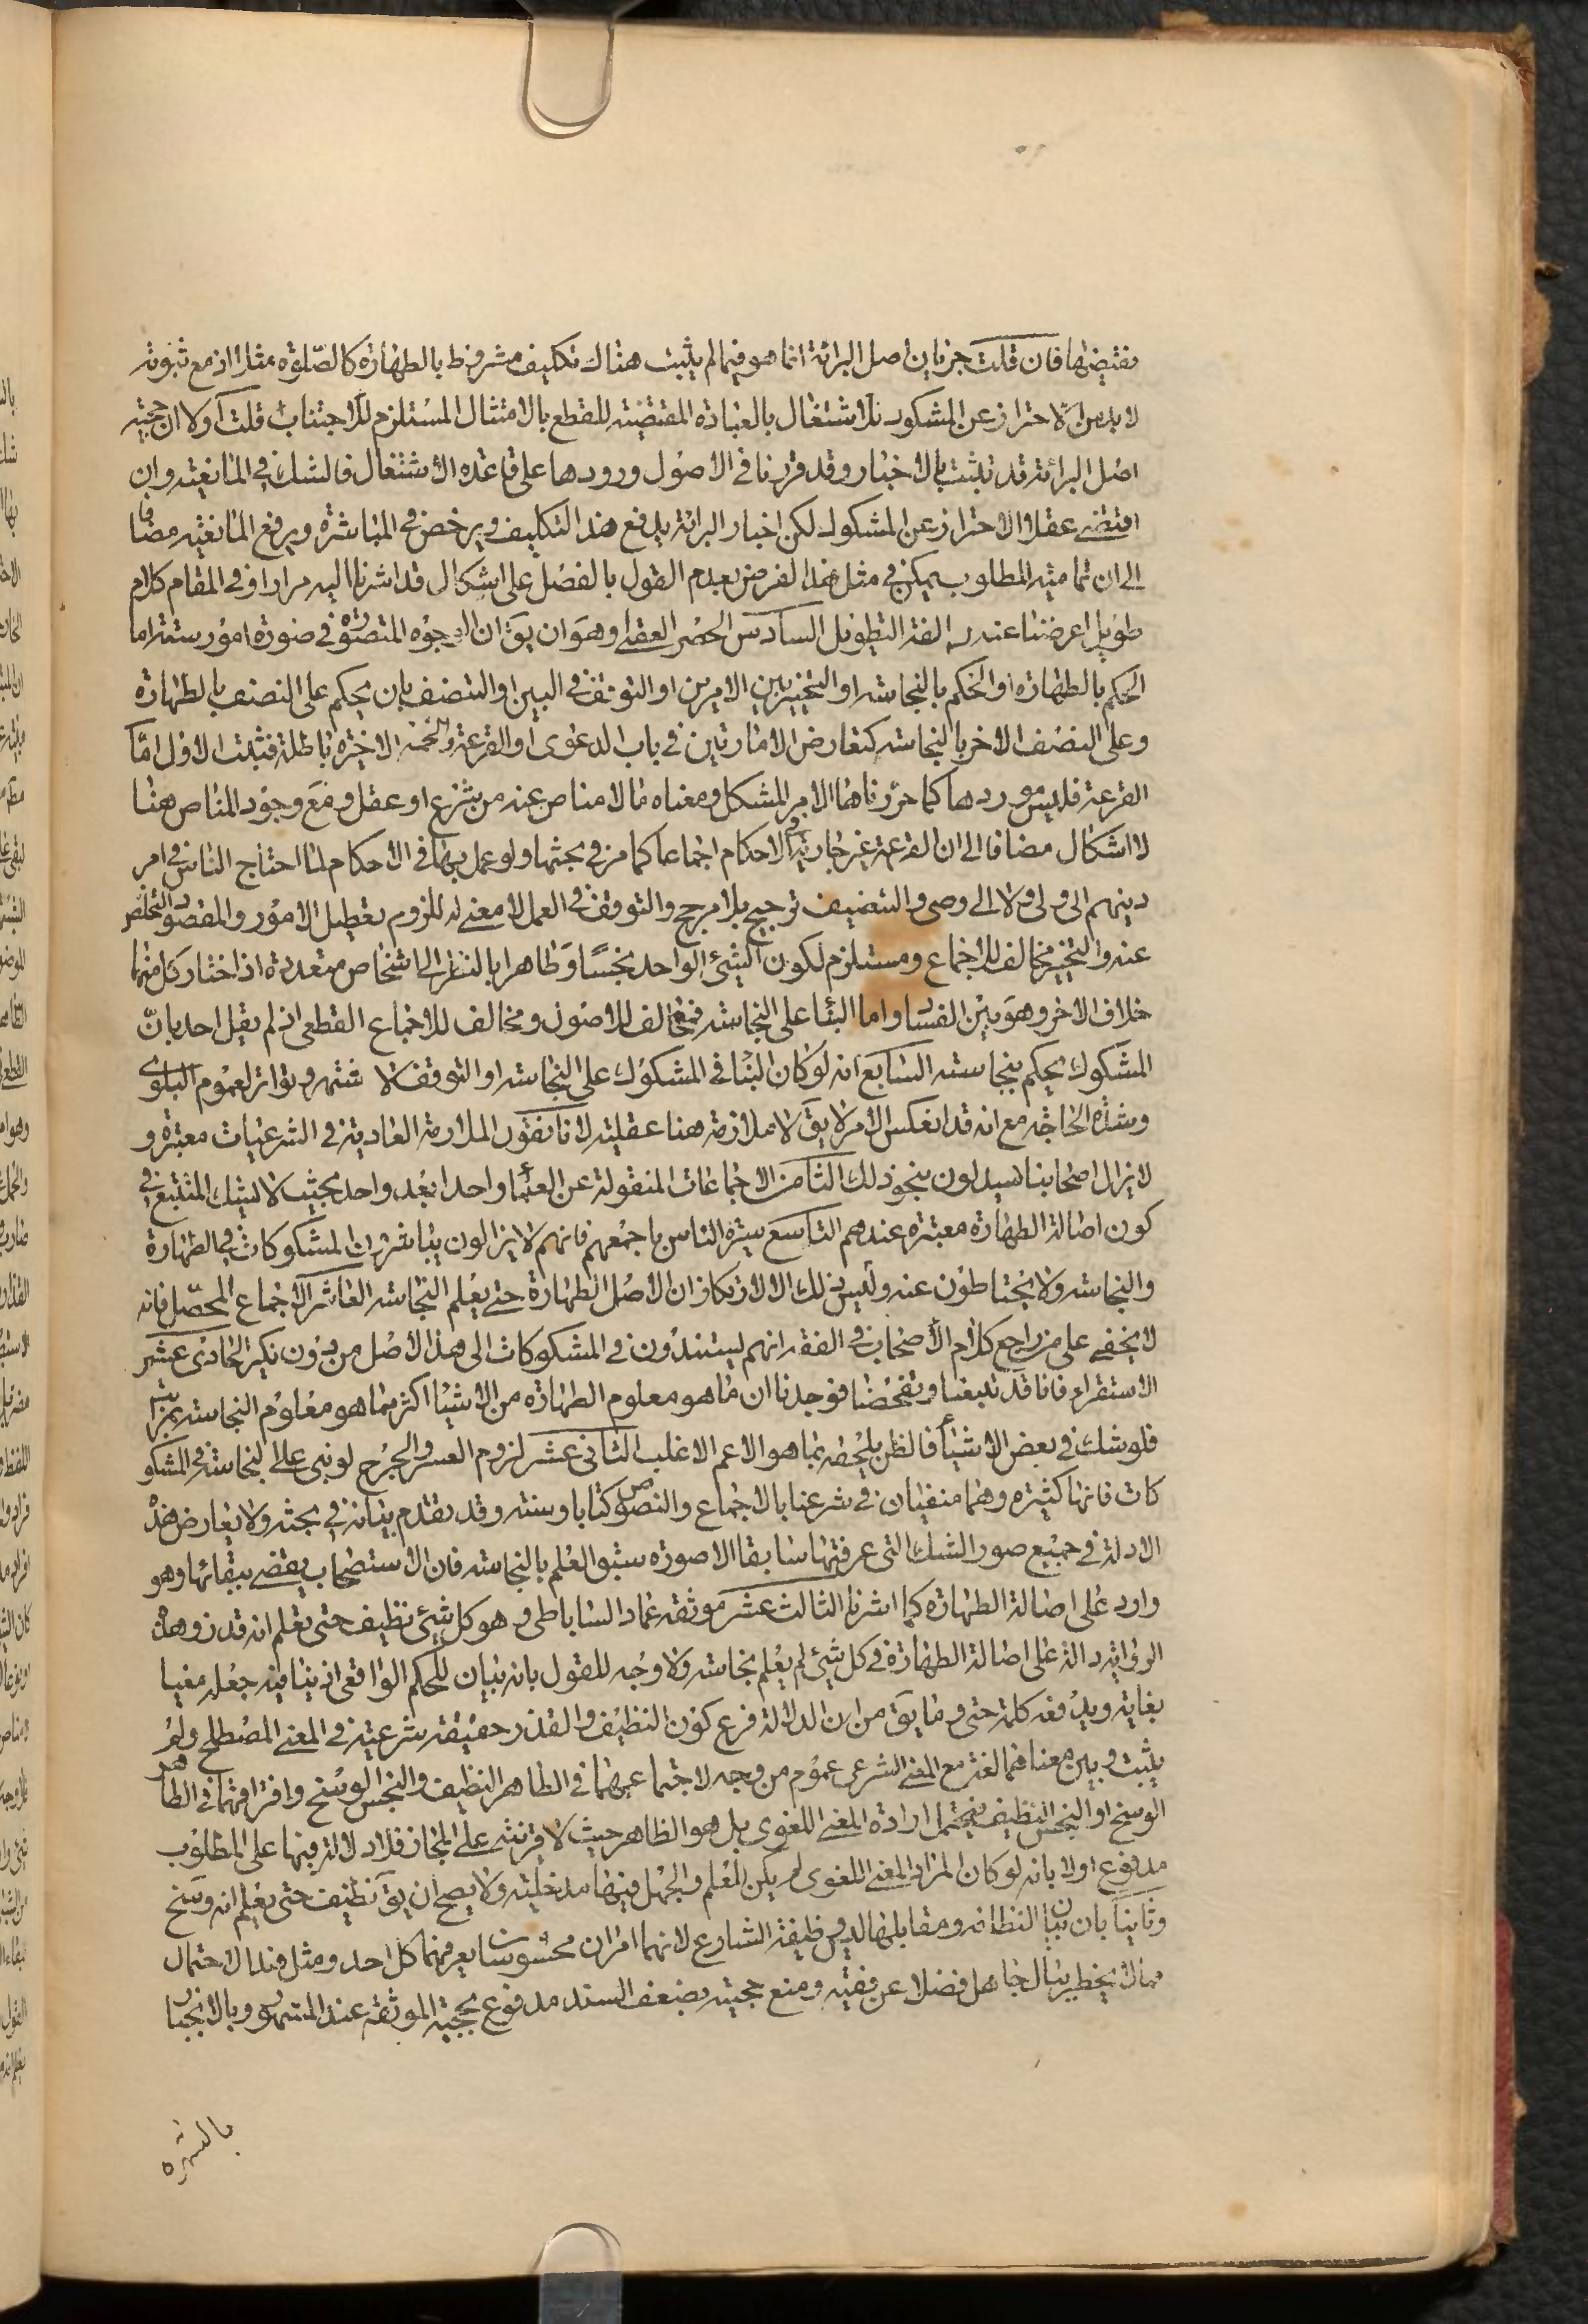 نقيضها فان قلت جريان اصل البرائة انما هو فيما لم يثبت هناك تكليف مشروط بالطهارة كالصّلوة مثلا اذ مع ثبوته
لا بد من الاحتراز عن المشكوك للاشتغال بالعبادة المقتضية للقطع بالامتثال المستلزم للاجتناب قلت اولا ان حجية
اصل البرائة قد تثبت بالاخبار وقد قررنا فى الاصول ورودها على قاعدة الاشتغال فالشك فى المانعية وان
اقتضى عقلا الاحتراز عن المشكوك لكن اخبار البرائة يدفع هذا التكليف ويرخص فى المباشرة ويرفع المانعية مضافا
الى ان تمامية المطلوب يمكن فى مثل هذا الفرض بعدم القول بالفصل على اشكال قد اشرنا اليه مرارا وفى المقام كلام
طويل اعرضنا عنه لمخالفة التطويل السادس الحصر العقلى وهو ان يقَ ان الوجوه المتصورة فى صورة امور ستة اما
الحكم بالطهارة او الحكم بالنجاسة او التخيير بين الامرين او التوقف فى البين او التنصف بان يحكم على النصف بالطهارة
وعلى النصف الاخر بالنجاسة كتعارض الامارتين فى باب الدعوى او القرعة والخمسة الاخيرة باطلة فثبت الاول امّا
القرعة فليس موردها كما حررناها الا الامر المشكل ومعناه ما لا مناص عنه من شرع او عقل ومع وجود المناص هنا
لا اشكال مضافا الى ان القرعة غير جارية فى الاحكام اجماعا كما مر فى بحثها ولو عمل بها فى الاحكام لما احتاج الناس فى امر
دينهم الى ولى ولا الى وصى والتنصيف ترجيح بلا مرجح والتوقف فى العمل لا معنى له للزوم تعطيل الامور والمقصود التخلص
عنه والتخيير مخالف للاجماع ومستلزم لكون الشئ الواحد نجسًا وطاهرا بالنظر الى اشخاص متعددة اذا اختار كل منهما
خلاف الاخر وهو بيّن الفساد واما البناء على النجاسة فمخالف للاصول ومخالف للاجماع القطعى اذ لم يقل احد بانّ
المشكوك يحكم بنجاسته السابع انه لو كان البناء فى المشكوك على النجاسة او التوقف لاشتهر وتواتر لعموم البلوى
وشدة الحاجة مع انه قد انعكس الامر لا يقَ لا ملازمة هنا عقلية لانا نقول الملازمة العادية فى الشرعيات معتبرة و
لا يزال اصحابنا يستدلون بنحو ذلك الثامن الاجماعات المنقولة عن العلماء واحدا بعد واحد بحيث لا يشك المتتبع فى
كون اصالة الطهارة معتبرة عندهم التاسع سيرة الناس باجمعهم فانهم لا يزالون يباشرون المشكوكات فى الطهارة
والنجاسة ولا يحتاطون عنه وليس ذلك الا لارتكاز ان الاصل الطهارة حتى يعلم النجاسة العاشر الاجماع المحصّل فانه
لا يخفى على من راجع كلام الاصحاب فى الفقه انهم يستندون فى المشكوكات الى هذا الاصل من دون نكير الحادى عشر
الاستقراء فانا قد تتبعنا وتفحصنا فوجدنا ان ما هو معلوم الطهارة من الاشياء اكثر مما هو معلوم النجاسة بمراتب
فلو شك فى بعض الاشياء فالظن يلحقه بما هو الاعم الاغلب الثانى عشر لزوم العسر والحرج لو بنى على النجاسة فى المشكو
كات فانها كثيرة وهما منفيان فى شرعنا بالاجماع والنصوص كتابا وسنة وقد تقدم بيانه فى بحثه ولا يعارض هذه
الادلة فى جميع صور الشك التى عرفتها سابقا الا صورة سبق العلم بالنجاسة فان الاستصحاب يقضى ببقائها وهو
وارد على اصالة الطهارة كما اشرنا الثالث عشر موثقة عمار الساباطى و هو كل شئ نظيف حتى يعلم انه قذر وهذه
الرواية دالة على اصالة الطهارة فى كل شئ لم يعلم نجاسته ولا وجه للقول بانه بيان للحكم الواقعى اذ ينافيه جعله مغيا
بغاية ويدفعه كلمة حتى وما يقَ من ان الدلالة فرع كون النظيف والقذر حقيقة شرعية فى المعنى المصطلح ولم
يثبت وبين معناهما لغة مع المعنى الشرعى عموم من وجه لاجتماعهما فى الطاهر النظيف والنجس الوسخ وافتراقهما فى الطاهر
الوسخ او النجس النظيف فيحتمل ارادة المعنى اللغوى بل هو الظاهر حيث لا قرينة على المجاز فلا دلالة فيها على المطلوب
مدفوع اولا بانه لو كان المراد المعنى اللغوى لم يكن للعلم والجهل فيها مدخلية ولا يصح ان يقَ نظيف حتى يعلم انه وسخ
وثانيا بان بيان النظافة ومقابلها ليس وظيفة الشارع لانهما امران محسوسان يعرفهما كل احد ومثل هذا الاحتمال
مما لا يخطر ببال جاهل فضلا عن فقيه ومنع حجيته بضعف السند مدفوع بحجية الموثقة عند المشهور وبالانجبار
بالشهرة